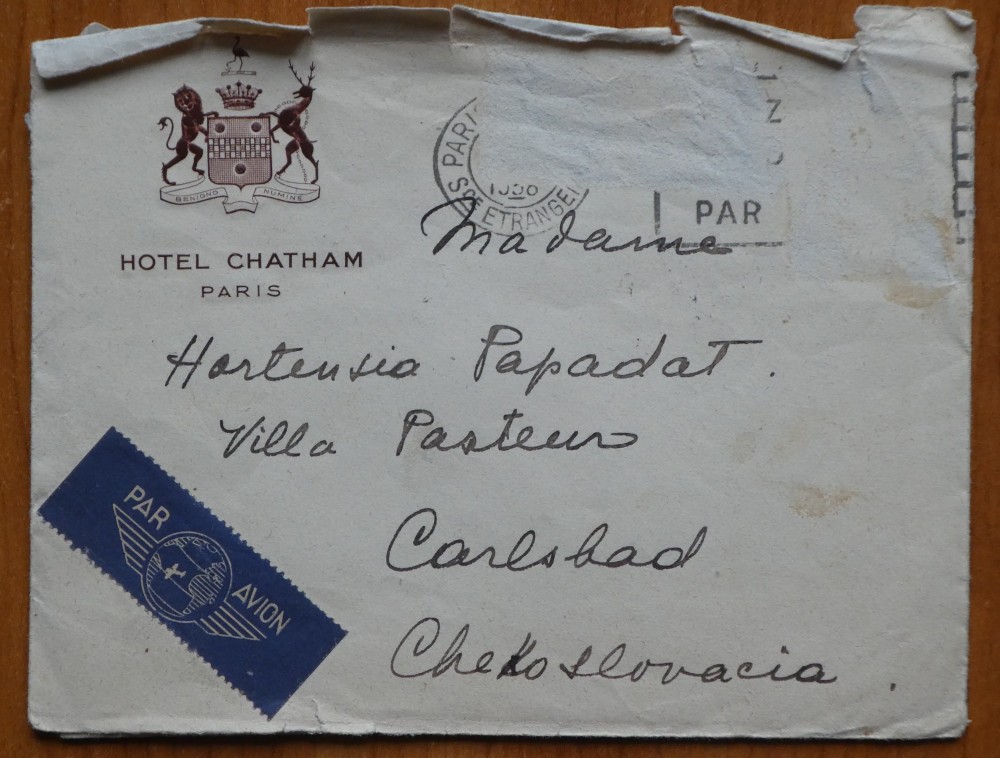 BENIGNO NUMINE
HOTEL CHATHAM
PARIS
ETRANGER
PAR
Madame
Hortensia Papadat.
Villa Pasteur
Carlsbad
Chekoslovacia.
PAR
AVION